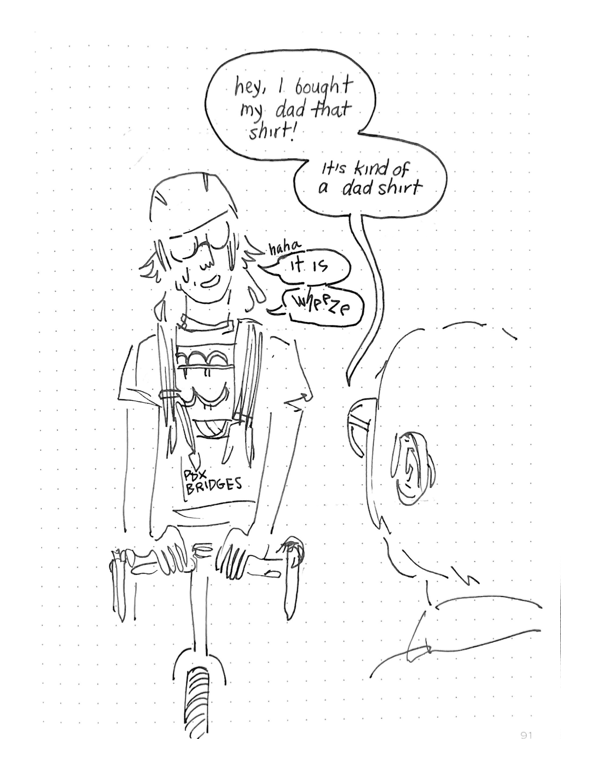 hey, I bought
my dad that
shirt!
it's kind of
a dad shirt
haha
it is
wheeze
PDX
BRIDGES
91